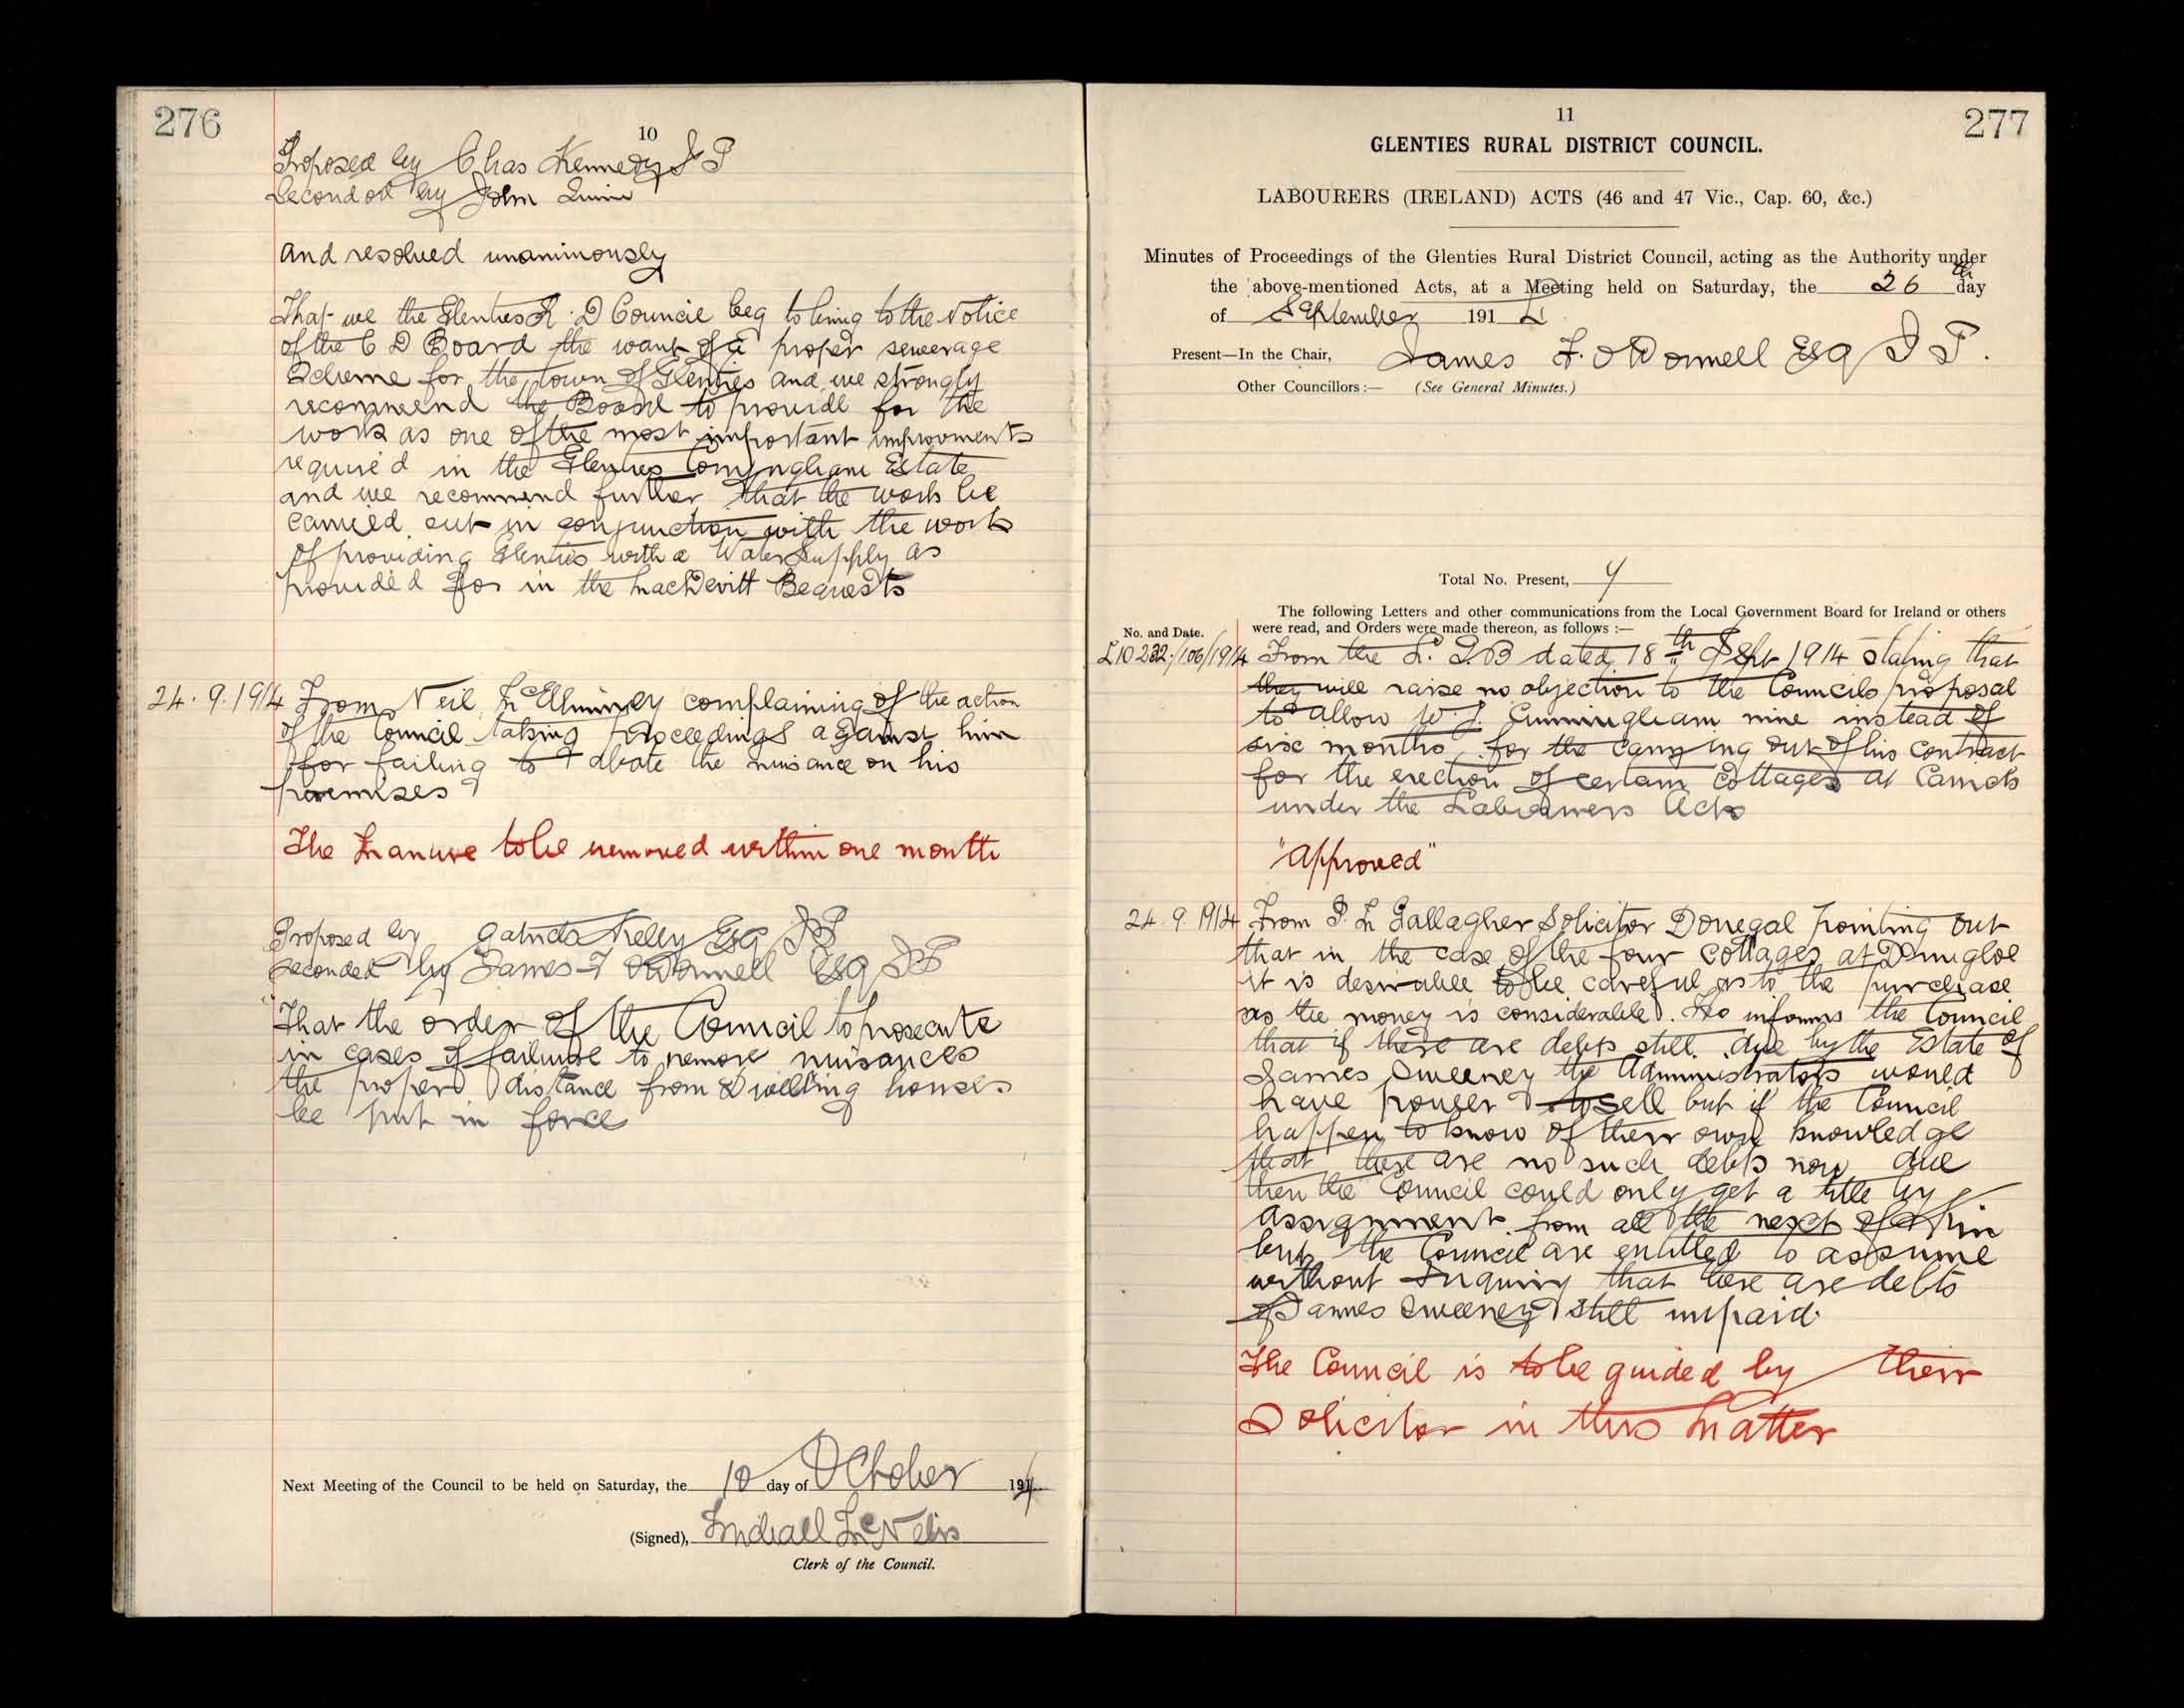 276
10
Proposed by Chas Kennedy J P
Seconded by John Quinn
and resolved unanimously
That we the Glenties R. D Council beg to bring to the Notice
of the C D Board the want of a proper sewerage
Scheme for the town of Glenties and we strongly
recommend the Board to provide for the
work as one of the most important improvments
required in the Glenties Conyngham Estate
and we recommend further that the work be
carried out in conjunction with the work
of providing Glenties with a Water Supply as
provided for in the MacDevitt Bequests
24.9.1914 From Neil complaining of the action
of the Council taking proceedings against him
for failing to abate the nuisance on his
premises
The Manure to be removed within one month
Proposed by Patrick Kelly Esq JP
seconded by James F O'Donnell Esq JP
"That the order of the Council to prosecute
in cases of failure to remove nuisances
the proper distance from dwelling houses
be put in force
Next Meeting of the Council to be held on Saturday, the 10 day of October 1914
(Signed), Michael McNelis
Clerk of the Council.
11
277
GLENTIES RURAL DISTRICT COUNCIL.
LABOURERS (IRELAND) ACTS (46 and 47 Vic., Cap. 60, &c.)
Minutes of Proceedings of the Glenties Rural District Council, acting as the Authority under
the above-mentioned Acts, at a Meeting held on Saturday, the 26th day
of September 1914
Present—In the Chair, James F. O'Donnell Esq J P.
Other Councillors:— (See General Minutes.)
Total No. Present,
The following Letters and other communications from the Local Government Board for Ireland or others
No. and Date. were read, and Orders were made thereon, as follows :—
L10232/106/1914 From the L. G. B dated 18th Sept 1914 stating that
they will raise no objection to the Councils proposal
to allow W. J. Cunningham nine instead of
six months for the carrying out of his contract
for the erection of certain Cottages at
under the Labourers Acts
"Approved"
24.9.1914 From P. M Gallagher Solicitor Donegal pointing out
that in the case of the four cottages at Dungloe
it is desirable to be careful as to the purchase
as the money is considerable. He informs the Council
that if there are debts still due by the Estate of
James Sweeney the Administrators would
have power to sell but if the Council
happen to know of their own knowledge
that there are no such debts now due
then the Council could only get a title by
assignment from all the next of kin
but the Council are entitled to assume
without Inquiry that there are debts
of James Sweeney still unpaid.
The Council is to be guided by their
Solicitor in this Matter